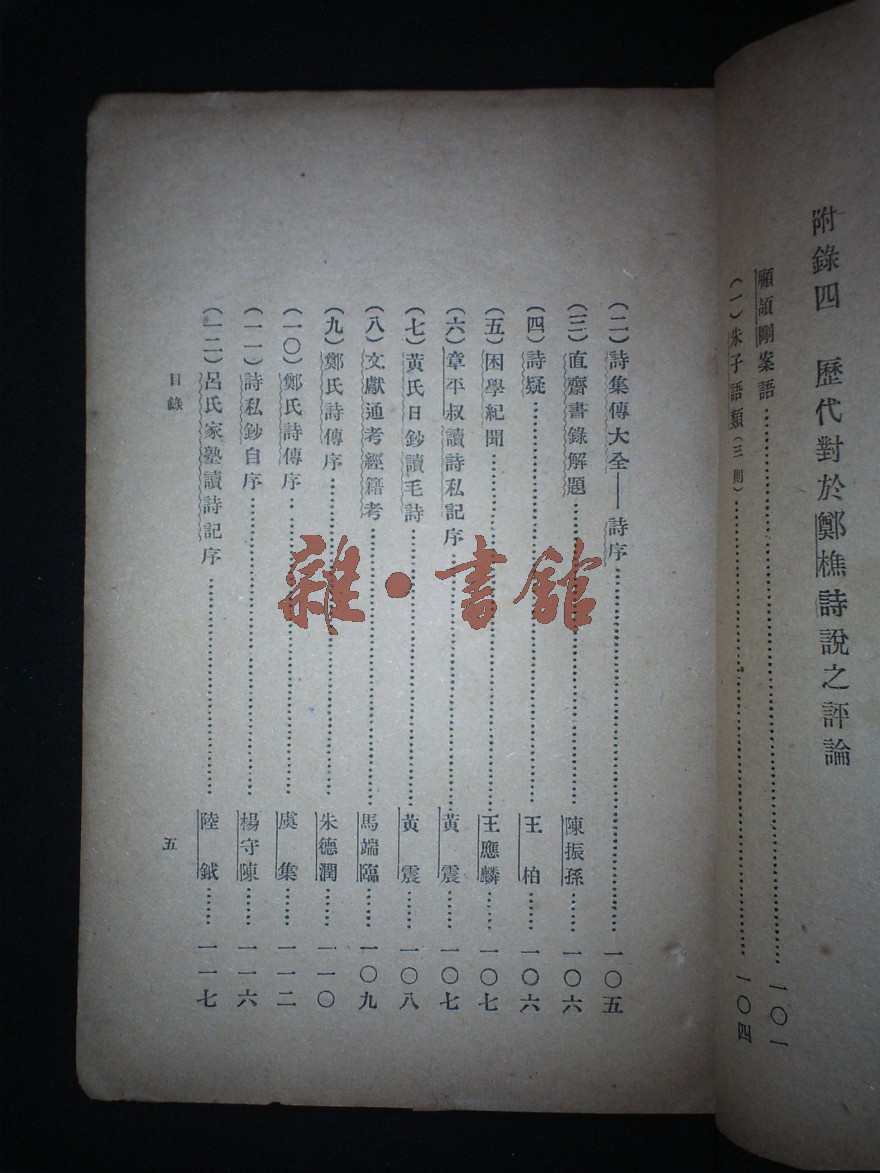 附錄四　歷代對於鄭樵詩說之評論
顧頡剛案語……一〇一
（一）朱子語類（三則）……一〇四
（二）詩集傳大全——詩序……一〇五
（三）直齋書錄解題……陳振孫……一〇六
（四）詩疑……王柏……一〇六
（五）困學紀聞……王應麟……一〇七
（六）章平叔讀詩私記序……黃震……一〇七
（七）黃氏日鈔讀毛詩……黃震……一〇八
（八）文獻通考經籍考……馬端臨……一〇九
（九）鄭氏詩傳序……朱德潤……一一〇
（一〇）鄭氏詩傳序……虞集……一一二
（一一）詩私鈔自序……楊守陳……一一六
（一二）呂氏家塾讀詩記序……陸釴……一一七
目錄
五
雜·書館